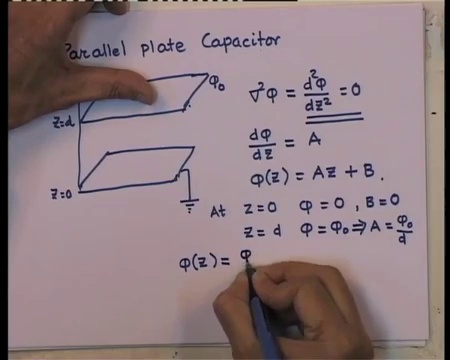 Parallel plate Capacitor
φ₀
z=d
z=0
∇²φ = d²φ/dz² = 0
dφ/dz = A
φ(z) = Az + B.
At z=0 φ=0 , B=0
z=d φ=φ₀ ⇒ A = φ₀/d
φ(z) = φ